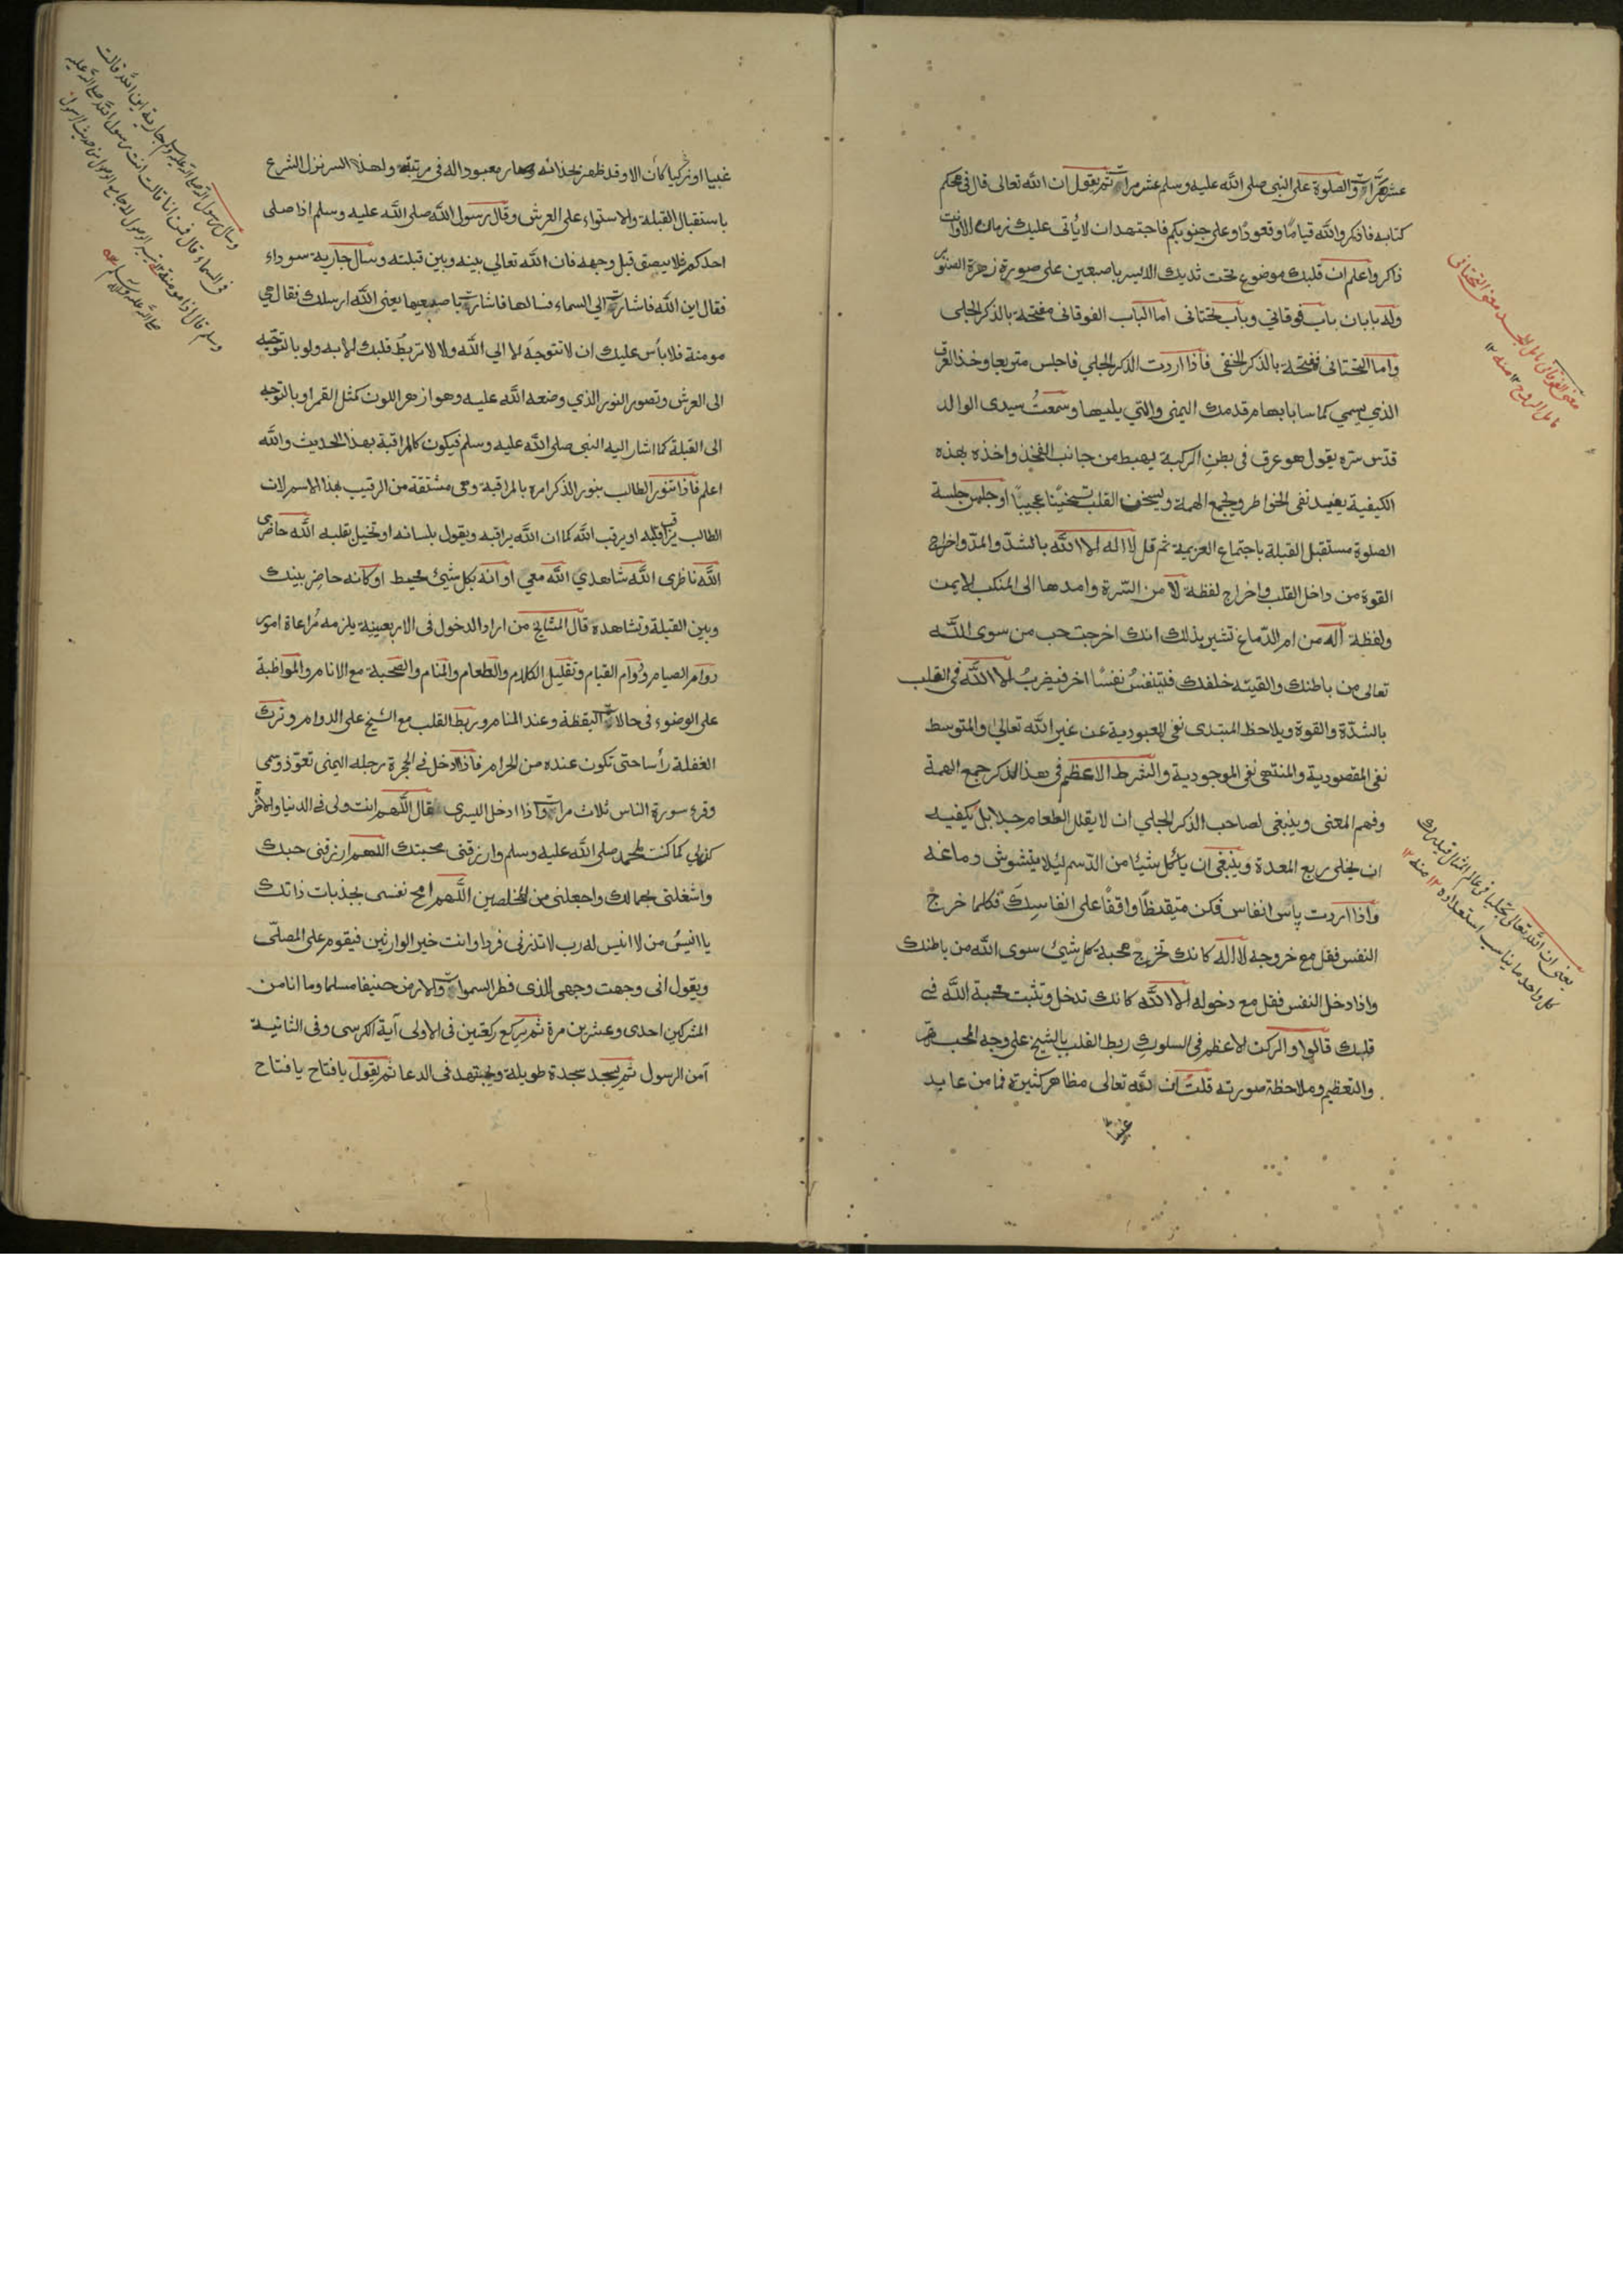 عشر مرات والصلوة على النبي صلى الله عليه وسلم عشر مرات ثم يقول ان الله تعالى قال في محكم
كتابه فاذكروا الله قياما وقعودا وعلى جنوبكم فاجتهد ان لا يأتى عليك زمان الا وانت
ذاكر واعلم ان قلبك موضوع تحت ثديك الايسر باصبعين على صورة زهرة الصنوبر
وله بابان باب فوقاني وباب تحتانى اما الباب الفوقانى مفتحه بالذكر الجلى
واما التحتانى ففتحه بالذكر الخفى فاذا اردت الذكر الجلي فاجلس متربعا وخذ العرق
الذي يسمي كماسا بابهام قدمك اليمنى والتي يليها وسمعت سيدى الوالد
قدس سره يقول هو عرق فى بطن الركبة يهبط من جانب الفخذ واخذه بهذه
الكيفية يفيد نفى الخواطر ويجمع الهمة ويسخن القلب تسخينا عجيبا او جلس جلسة
الصلوة مستقبل القبلة باجتماع العزيمة ثم قل لا اله الا الله بالشد والمد واخراج
القوة من داخل القلب واخراج لفظة لا من السرة وامدها الى المنكب الايمن
ولفظة اله من ام الدماغ تشير بذلك انك اخرجت حب من سوى الله
تعالى من باطنك والقيته خلفك فتتنفس نفسا اخر فيضرب الا الله فى القلب
بالشدة والقوة ويلاحظ المبتدى نفى المعبودية عن غير الله تعالى والمتوسط
نفى المقصودية والمنتهى نفى الموجودية والشرط الاعظم فى هذا الذكر جمع الهمة
وفهم المعنى وينبغى لصاحب الذكر الجلي ان لا يقلل الطعام جدا بل يكفيه
ان يخلى ربع المعدة وينبغى ان يأكل شيئا من الدسم لئلا يتشوش دماغه
واذا اردت پاس انفاس فكن متيقظا واقفا على انفاسك فكلما خرج
النفس فقل مع خروجه لا اله كانك تخرج محبة كل شيئ سوى الله من باطنك
واذا دخل النفس فقل مع دخوله الا الله كانك تدخل وتثبت محبة الله في
قلبك قالوا والركن الاعظم فى السلوك ربط القلب بالشيخ على وجه المحبة
والتعظيم وملاحظة صورته قلت ان لله تعالى مظاهر كثيرة فما من عابد
غبيا
معنى التحتانى
يعنى ان الله تعالى تجليا فى عالم المثال
كل واحد ما يناسب استعداده ١٢ منه
غبيا او زكيا كان الا وقد ظهر بحذائه وصار معبودا له فى مرتبته ولهذا السر نزل الشرع
باستقبال القبلة والاستواء على العرش وقال رسول الله صلى الله عليه وسلم اذا صلى
احدكم فلا يبصق قبل وجهه فان الله تعالي بينه وبين قبلته وسأل جارية سوداء
فقال اين الله فاشارت الي السماء فسالها فاشارت باصبعيها يعنى الله ارسلك فقال هي
مومنة فلا بأس عليك ان لا تتوجه الا الي الله ولا تربط قلبك الا به ولو بالتوجه
الى العرش وتصور النور الذي وضعه الله عليه وهو ازهر اللون كمثل القمر او بالتوجه
الى القبلة كما اشار اليه النبى صلى الله عليه وسلم فيكون كالمراقبة بهذا الحديث والله
اعلم فاذا تنور الطالب بنور الذكر امره بالمراقبة وهى مشتقة من الرقيب بهذا الاسم لان
الطالب يراقب قلبه او يرقب الله كما ان الله يراقبه ويقول بلسانه او تخيل بقلبه الله حاضرى
الله ناظرى الله شاهدي الله معي او انه بكل شيئ محيط او كانه حاضر بينك
وبين القبلة وتشاهده قال المشايخ من اراد الدخول فى الاربعينة يلزمه مراعاة امور
دوام الصيام ودوام القيام وتقليل الكلام والطعام والمنام والصحبة مع الانام والمواظبة
على الوضوء فى حالات اليقظة وعند المنام وربط القلب مع الشيخ على الدوام وترك
الغفلة رأسا حتى تكون عنده من الحرام فاذا ادخل في الحجرة رجله اليمنى تعوذ وسمى
وقرء سورة الناس ثلاث مرات واذا ادخل اليسرى قال اللهم انت ولى فى الدنيا والاخرة
كن لي كما كنت لمحمد صلى الله عليه وسلم وارزقنى محبتك اللهم ارزقنى حبك
واشغلنى بجمالك واجعلنى من المخلصين اللهم امح نفسى بجذبات ذاتك
يا انيس من لا انيس له رب لا تذرنى فردا وانت خير الوارثين فيقوم على المصلى
ويقول انى وجهت وجهى للذى فطر السموات والارض حنيفا مسلما وما انا من
المشركين احدى وعشرين مرة ثم يركع ركعتين فى الاولى آية الكرسى وفى الثانية
آمن الرسول ثم يسجد سجدة طويلة ويجتهد فى الدعا ثم يقول يا فتاح يا فتاح
وسأل رسول الله صلى الله عليه وسلم جارية اين الله قالت
فى السماء قال فمن انا قالت انت رسول الله صلى الله عليه
وسلم قال انها مومنة
صلى الله عليه وسلم